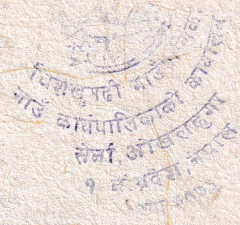 चिशंखुगढी गाउँपालिका
गाउँ कार्यपालिकाको कार्यालय
सेर्ना, ओखलढुङ्गा
१ नं. प्रदेश, नेपाल